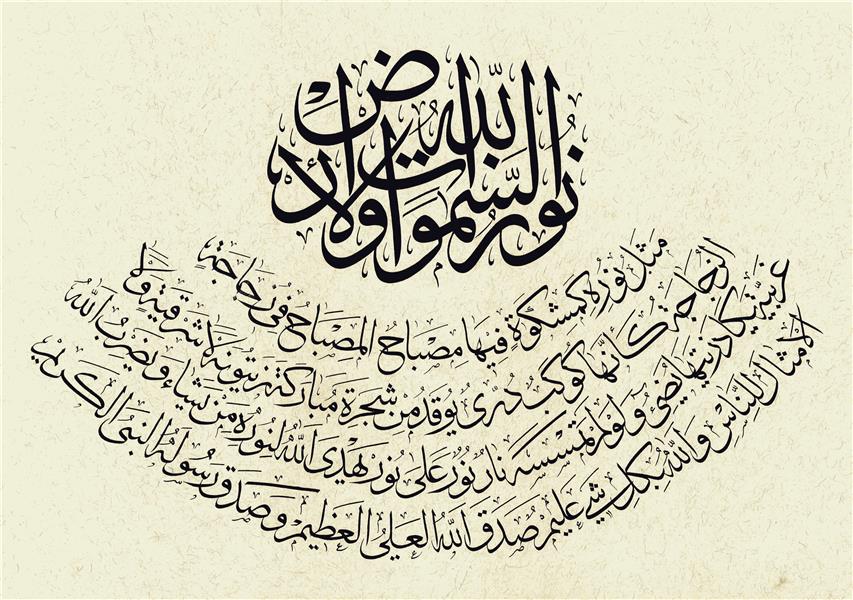 الله نور السموات والأرض
مثل نوره كمشكوة فيها مصباح المصباح في زجاجة
الزجاجة كأنها كوكب دري يوقد من شجرة مباركة زيتونة لا شرقية ولا
غربية يكاد زيتها يضيء ولو لم تمسسه نار نور على نور يهدي الله لنوره من يشاء ويضرب الله
الأمثال للناس والله بكل شيء عليم صدق الله العلي العظيم وصدق رسوله النبي الكريم